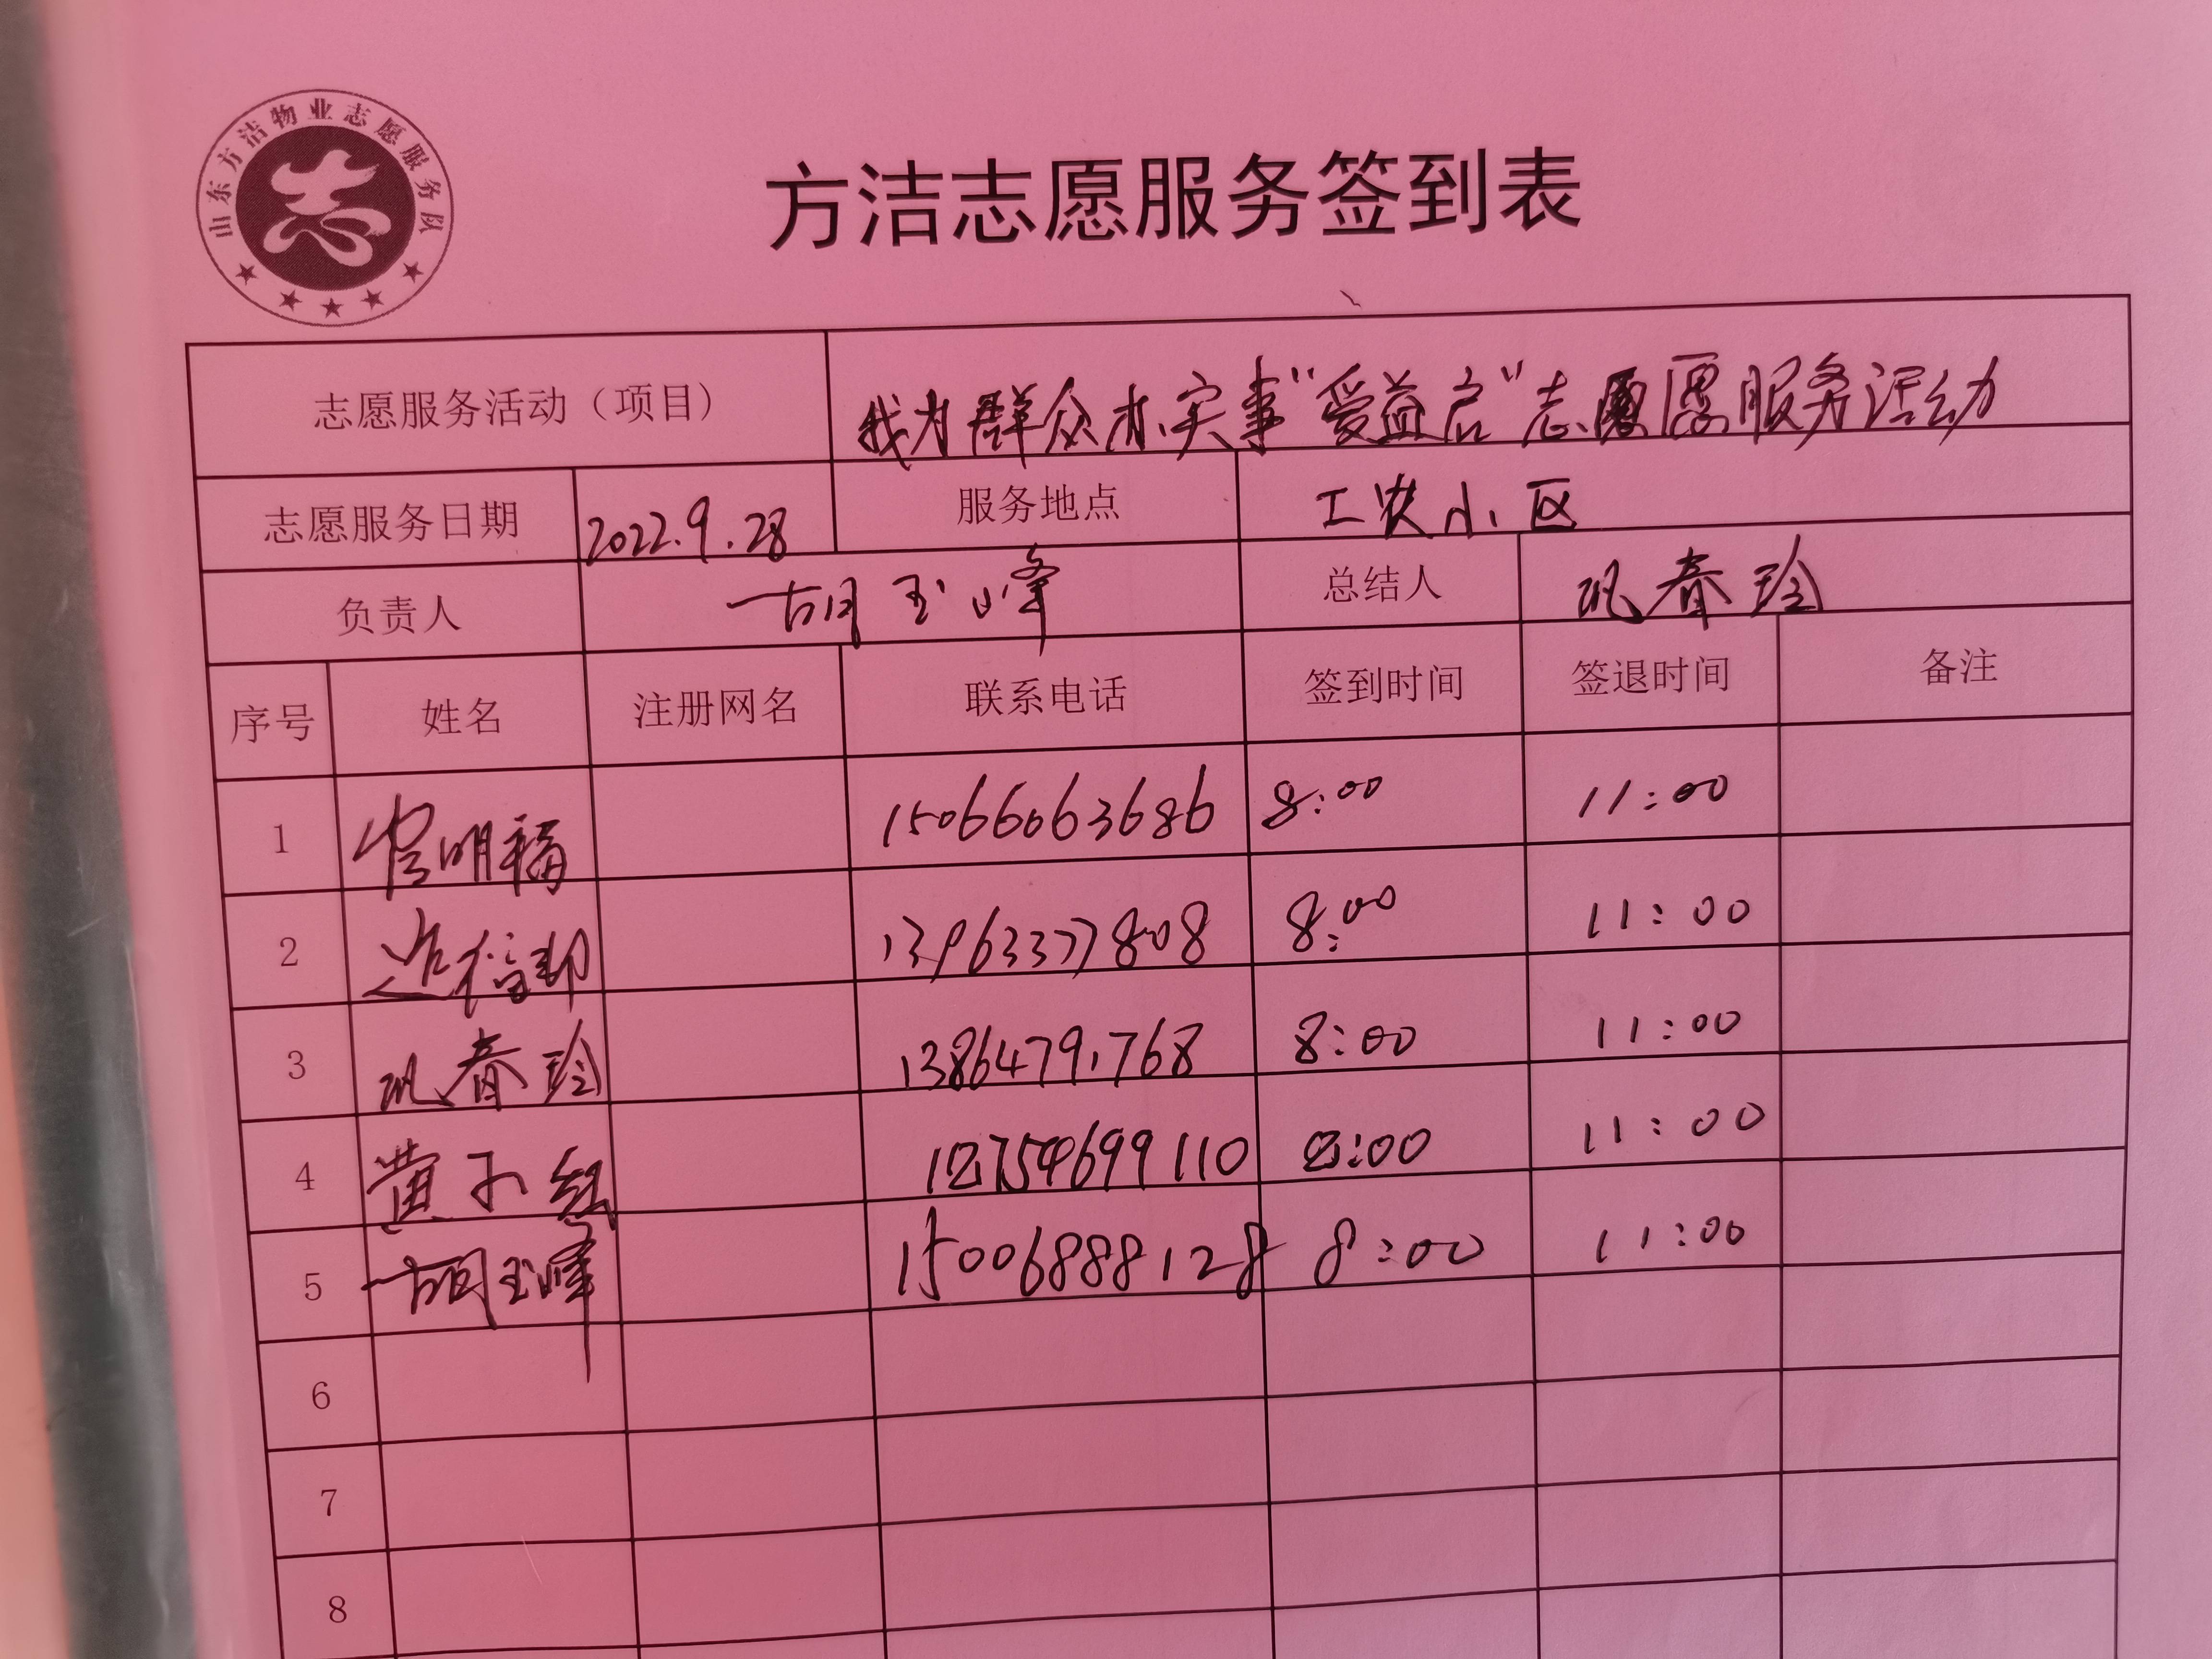 山东方洁物业志愿服务队
方洁志愿服务签到表
志愿服务活动（项目） 我为群众办实事“爱益启”志愿服务活动
志愿服务日期 2022.9.28 服务地点 工农小区
负责人 胡玉峰 总结人 巩春玲
序号 姓名 注册网名 联系电话 签到时间 签退时间 备注
1 明福 15066063686 8:00 11:00
2 13963377808 8:00 11:00
3 巩春玲 13864791768 8:00 11:00
4 黄 8:00 11:00
5 胡玉峰 15006888128 8:00 11:00
6
7
8